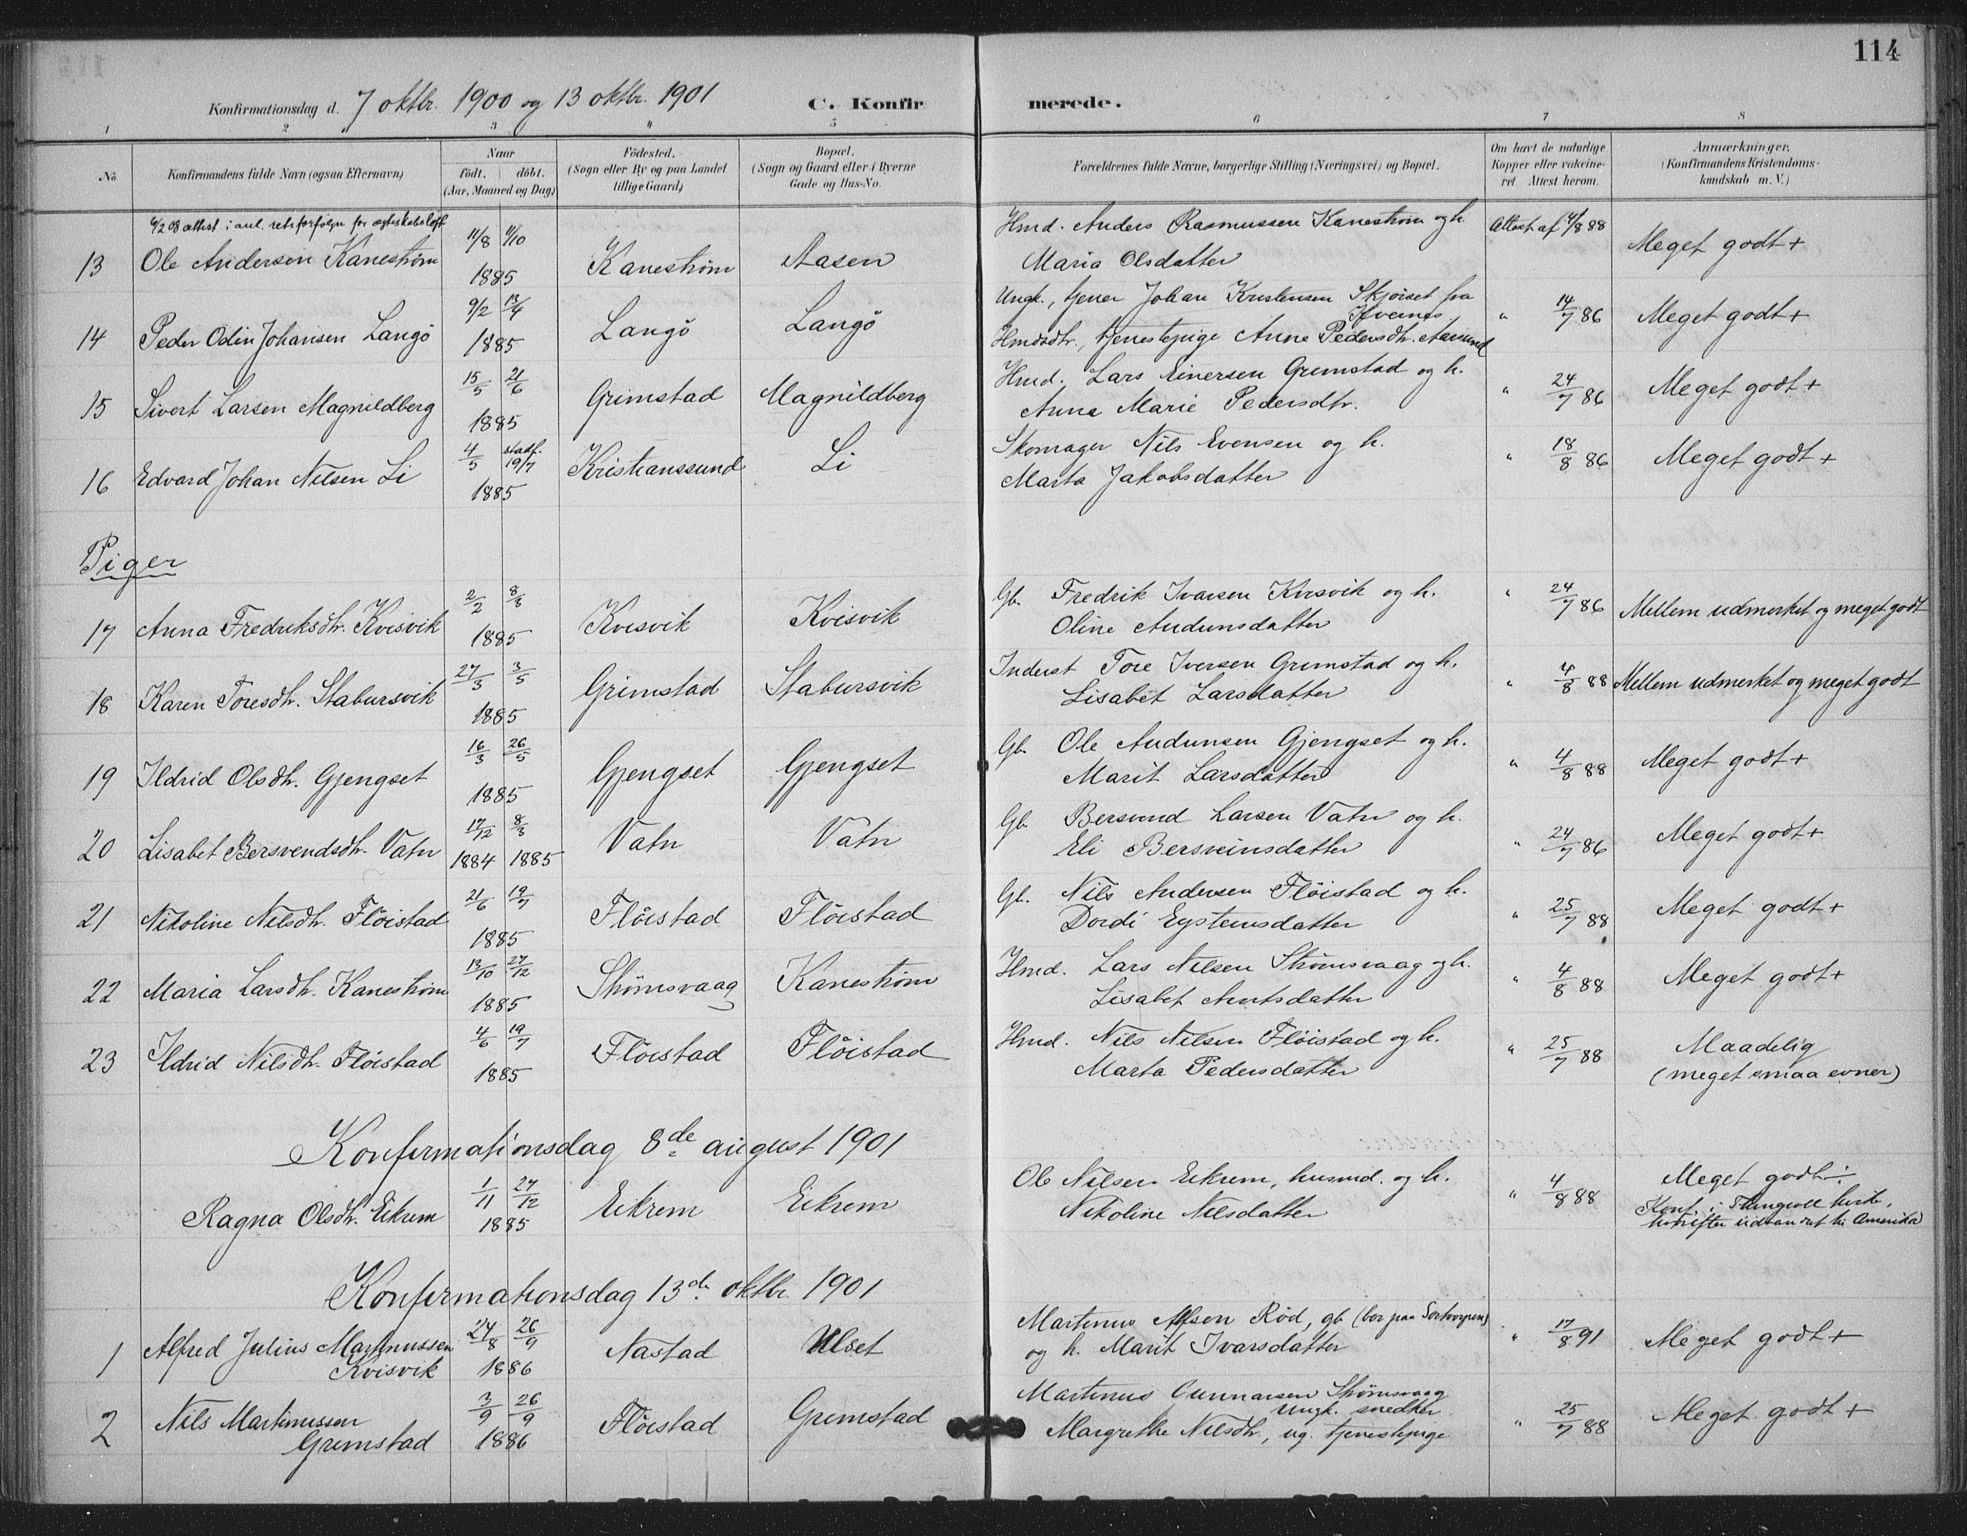 114
Konfirmationsdag d. 7 oktbr. 1900 og 13 oktbr. 1901 C. Konfirmerede.
1 2 3 4 5 6 7 8
No
Konfirmandens fulde Navn (ogsaa Efternavn)
Naar
födt. döbt.
(Aar, Maaned og Dag)
Födested.
(Sogn eller By og paa Landet
tillige Gaard)
Bopæl.
(Sogn og Gaard eller i Byerne
Gade og Hus-No.
Forældrenes fulde Navne, borgerlige Stilling (Næringsvei) og Bopæl.
Om havt de naturlige
Kopper eller vakcine-
ret Attest herom.
Anmærkninger.
(Konfirmandens Kristendoms-
kundskab m. V.)
6/2 08 attest i anl. retsforfølgn for ægteskabsløft
13 Ole Andersen Kanestrøm 11/8 11/10 1885 Kanestrøm Aasen Hmd. Anders Rasmussen Kanestrøm og h. Attest af 4/8 88 Meget godt +
Maria Olsdatter
14 Peder Odin Johansen Langö 9/2 13/4 1885 Langö Langö Ungk., tjener Johan Kristensen Skjöiset fra " 14/7 86 Meget godt +
Hmdsdtr., tjenestepige Anne Pedersdtr. Aarsund
15 Sivert Larsen Magnildberg 15/5 21/6 1885 Grimstad Magnildberg Hmd. Lars Einersen Grimstad og h. " 24/7 86 Meget godt +
Anna Marie Pedersdtr.
16 Edvard Johan Nilsen Li 4/5 stadf. 19/7 1885 Kristianssund Li Skomager Nils Evensen og h. " 18/8 86 Meget godt +
Marta Jakobsdatter
Piger
17 Anna Fredriksdtr. Kvisvik 2/2 8/3 1885 Kvisvik Kvisvik Gb. Fredrik Ivarsen Kvisvik og h. " 24/7 86 Mellem udmerket og meget godt
Oline Audunsdatter
18 Karen Toresdtr. Stabursvik 27/3 3/5 1885 Grimstad Stabursvik Inderst Tore Iversen Grimstad og h. " 4/8 88 Mellem udmerket og meget godt
Lisabet Larsdatter
19 Ildrid Olsdtr. Gjengset 16/3 26/5 1885 Gjengset Gjengset Gb. Ole Audunsen Gjengset og h. " 4/8 88 Meget godt +
Marit Larsdatter
20 Lisabet Bersvendsdtr. Vatn 17/12 1884 8/3 1885 Vatn Vatn Gb. Bersvend Larsen Vatn og h. " 24/7 86 Meget godt +
Eli Bersveinsdatter
21 Nikoline Nilsdtr. Flöistad 21/6 19/7 1885 Flöistad Flöistad Gb. Nils Andersen Flöistad og h. " 25/7 88 Meget godt +
Dordi Eysteinsdatter
22 Maria Larsdtr. Kanestrøm 13/10 27/12 1885 Strømsvaag Kanestrøm Hmd. Lars Nilsen Strømsvaag og h. " 4/8 88 Meget godt +
Lisabet Arntsdatter
23 Ildrid Nilsdtr. Flöistad 4/6 19/7 1885 Flöistad Flöistad Hmd. Nils Nilsen Flöistad og h. " 25/7 88 Maadelig
Marta Pedersdatter (meget smaa evner)
Konfirmationsdag 8de august 1901
Ragna Olsdtr. Eikrem 1/11 27/12 1885 Eikrem Eikrem Ole Nilsen Eikrem, husmd. og h. " 4/8 88 Meget godt ÷
Nikoline Nilsdatter Konf. i Thingvoll kirke,
hvorefter udvandret til Amerika
Konfirmationsdag 13de oktbr 1901
1 Alfred Julius Martinussen 24/8 26/9 1886 Nastad Ulset Martinus Alfsen Röd, gb (bor paa Sortvoyren) " 17/8 91 Meget godt +
Kvisvik og h. Marit Ivarsdatter
2 Nils Martinussen 3/9 26/9 1886 Flöistad Grimstad Martinus Gunnarsen Strømsvaag " 25/7 88 Meget godt +
Grimstad ungk. snedker
Margrethe Nilsdtr, ug. tjenestepige